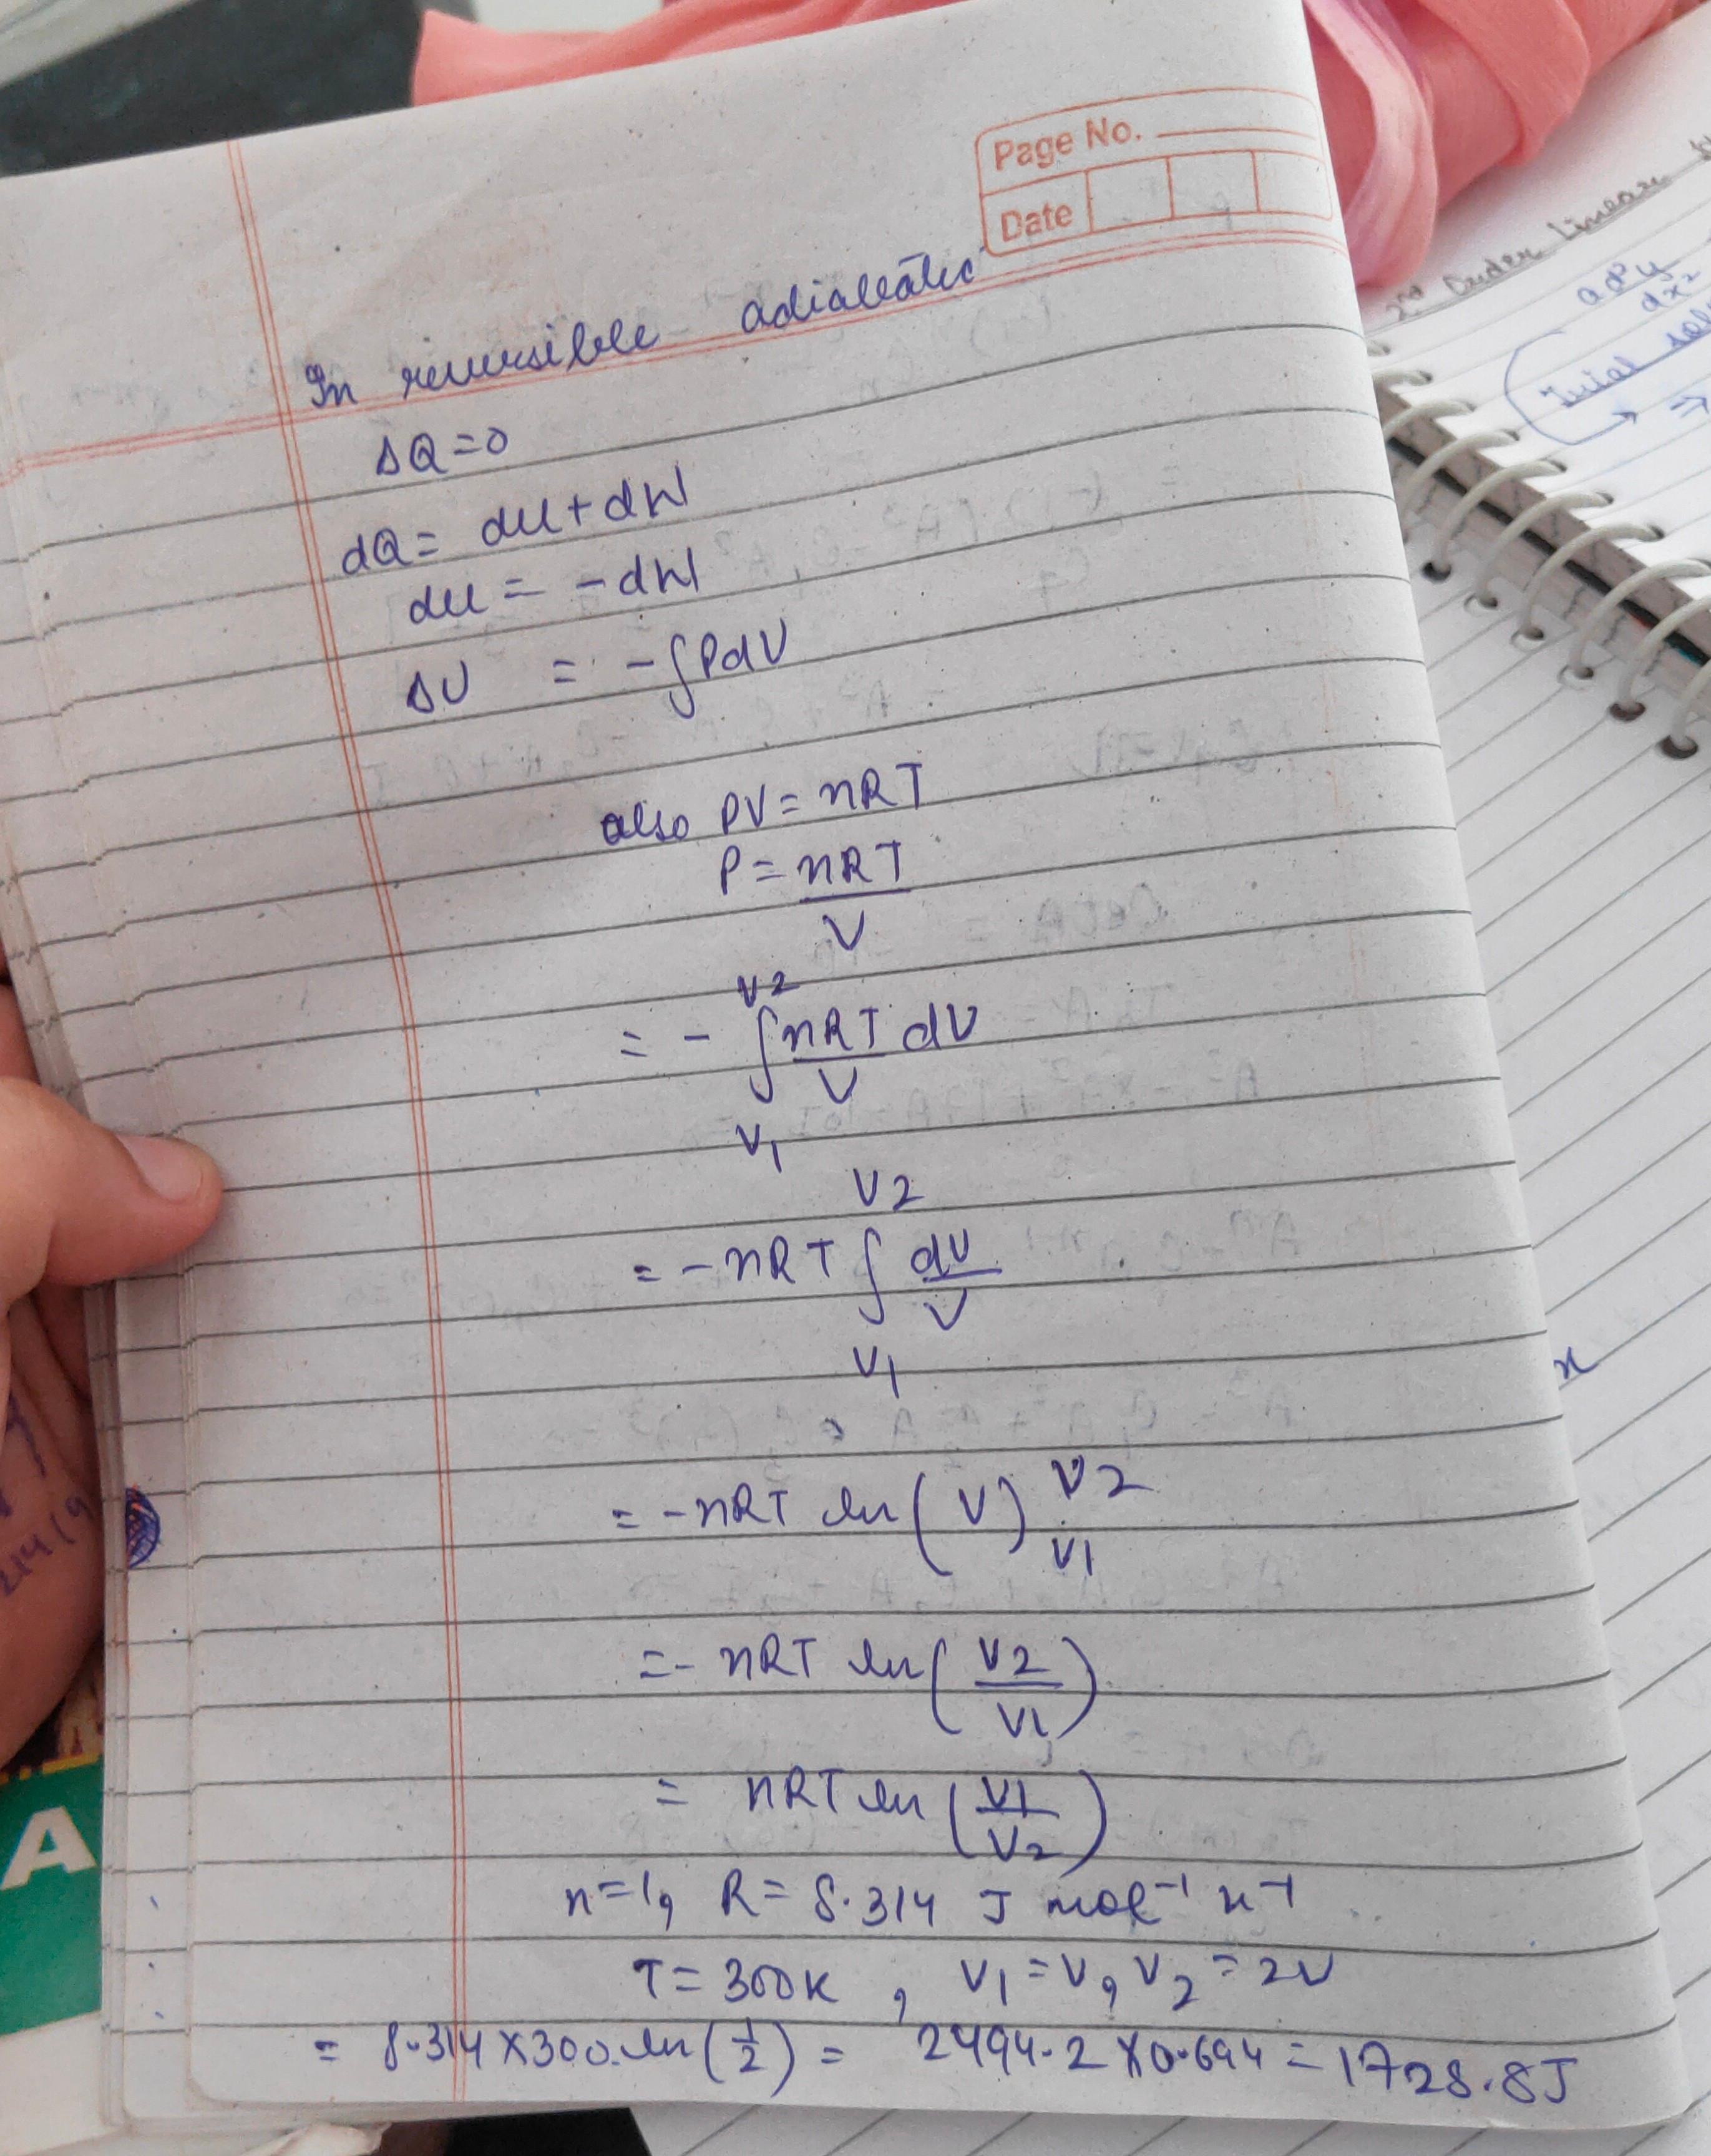 Page No.
Date
In reversible adiabatic
ΔQ=0
dQ= du+dW
du = -dW
ΔU = -∫PdV
also PV=nRT
P=nRT
V
V2
= - ∫nRT dV
V
V1
V2
=-nRT ∫ dV
V
V1
=-nRT ln(V) V2
V1
=- nRT ln(V2
V1)
= nRT ln(V1
V2)
n=1, R=8.314 J mol⁻¹ K⁻¹
T=300K, V1=V, V2=2V
= 8.314×300.ln(1/2) = 2494.2×0.694=1728.8J
2nd Order Linear
ad²y
dx²
Trial
⇒
x
A